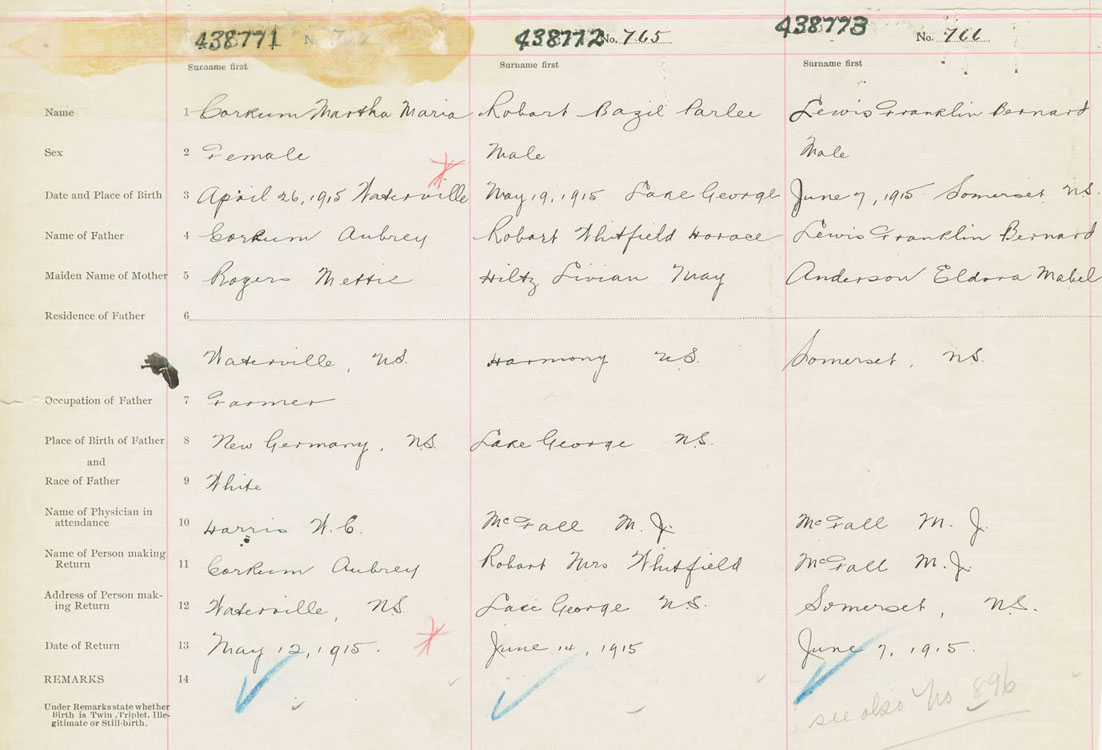 438771 N 7 438772 No. 765 438773 No. 766
Surname first Surname first Surname first
Name 1 Corkum Martha Maria Robart Bazil Parlee Lewis Franklin Bernard
Sex 2 Female Male Male
Date and Place of Birth 3 April 26, 1915 Waterville May 19, 1915 Lake George June 7, 1915 Somerset NS.
Name of Father 4 Corkum Aubrey Robart Whitfield Horace Lewis Franklin Bernard
Maiden Name of Mother 5 Rogers Mettie Hiltz Livian May Anderson Eldora Mabel
Residence of Father 6
Waterville, NS. Harmony NS. Somerset, NS.
Occupation of Father 7 Farmer
Place of Birth of Father 8 New Germany, NS. Lake George NS.
and
Race of Father 9 White
Name of Physician in
attendance 10 Harris W.C. McFall M.J. McFall M.J.
Name of Person making
Return 11 Corkum Aubrey Robart Mrs Whitfield McFall M.J.
Address of Person mak-
ing Return 12 Waterville, NS Lake George NS. Somerset, NS.
Date of Return 13 May 12, 1915. June 14, 1915 June 7, 1915.
REMARKS 14
see also No 896
Under Remarks state whether
Birth is Twin, Triplet, Ille-
gitimate or Still-birth.